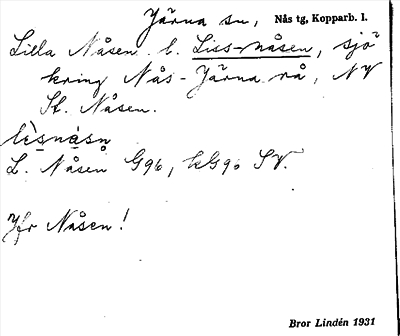 Järna sn, Nås tg, Kopparb. l.
Lilla Nåsen l. Liss-nåsen, sjö
kring Nås-Järna rå, NV
St. Nåsen.
lìsnàsn
L. Nåsen G96, kG90 SV.
Jfr Nåsen!
Bror Lindén 1931